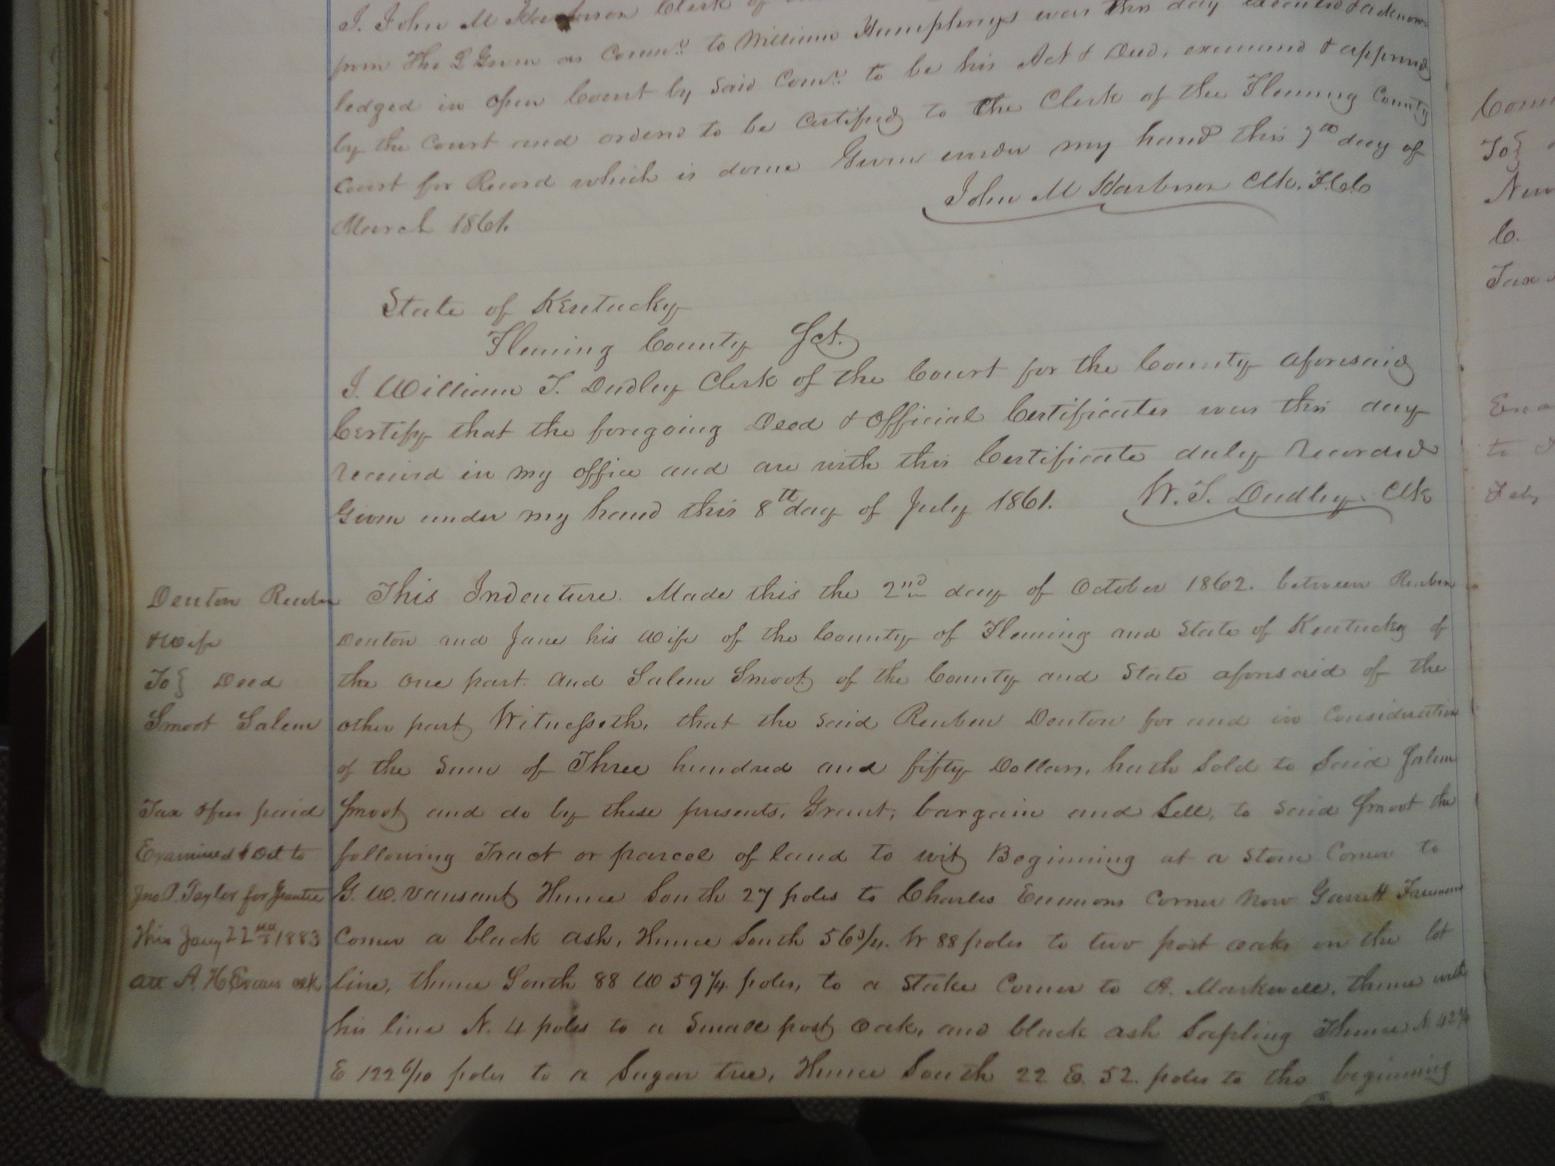 I. John M Harbeson Clerk of
from Tho S Given as Comr. to William Humphreys was this day &
ledged in open Court by said Comr. to be his Act & Deed, examined & approved
by the Court and ordered to be Certified to the Clerk of the Fleming County
Court for Record which is done Given under my hand this 7th day of
March 1861.
John M Harbeson Clk. F.C.C
State of Kentucky
Fleming County Sct.
I. William T. Dudley Clerk of the Court for the County aforesaid
Certify that the foregoing Deed & Official Certificates was this day
received in my office and are with this Certificate duly Recorded
Given under my hand this 8th day of July 1861.
W. T. Dudley. Clk
Denton Reuben
& Wife
To} Deed
Smoot Salem
This Indenture. Made this the 2nd day of October 1862. between Reuben
Denton and Jane his Wife of the County of Fleming and State of Kentucky of
the One part. And Salem Smoot of the County and State aforesaid of the
other part Witnesseth, that the said Reuben Denton for and in Consideration
of the Sum of Three hundred and fifty Dollars, hath Sold to Said Salem
Smoot and do by these presents, Grant, bargain and Sell, to said Smoot the
following Tract or parcel of land to wit Beginning at a Stone Corner to
G. W. Vansant Thence South 27 poles to Charles Emmons Corner Now Garrett
Corner a black ash, Thence South 56 3/4. W 88 poles to two post oaks on the lot
line, thence South 88 W 59 1/4 poles, to a Stake Corner to A. Markwell, thence with
his line N. 4 poles to a Small post oak, and black ash Sapling Thence N
E 122 6/10 poles to a Sugar tree, Thence South 22 E. 52. poles to the beginning
Tax & fees paid
Examined & Del to
Jno P. Taylor for Grantee
This Jany 22nd 1883
att A. H. Evans clk
Com
To}
New
C.
Tax
to
Feby